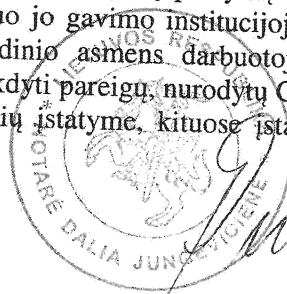 uo jo gavimo institucijoj
dinio asmens darbuotoj
kdyti pareigų, nurodytų
ių įstatyme, kituose įsta
LIETUVOS RESPUBLI
NOTARĖ DALIA JUNCEVIČIENĖ